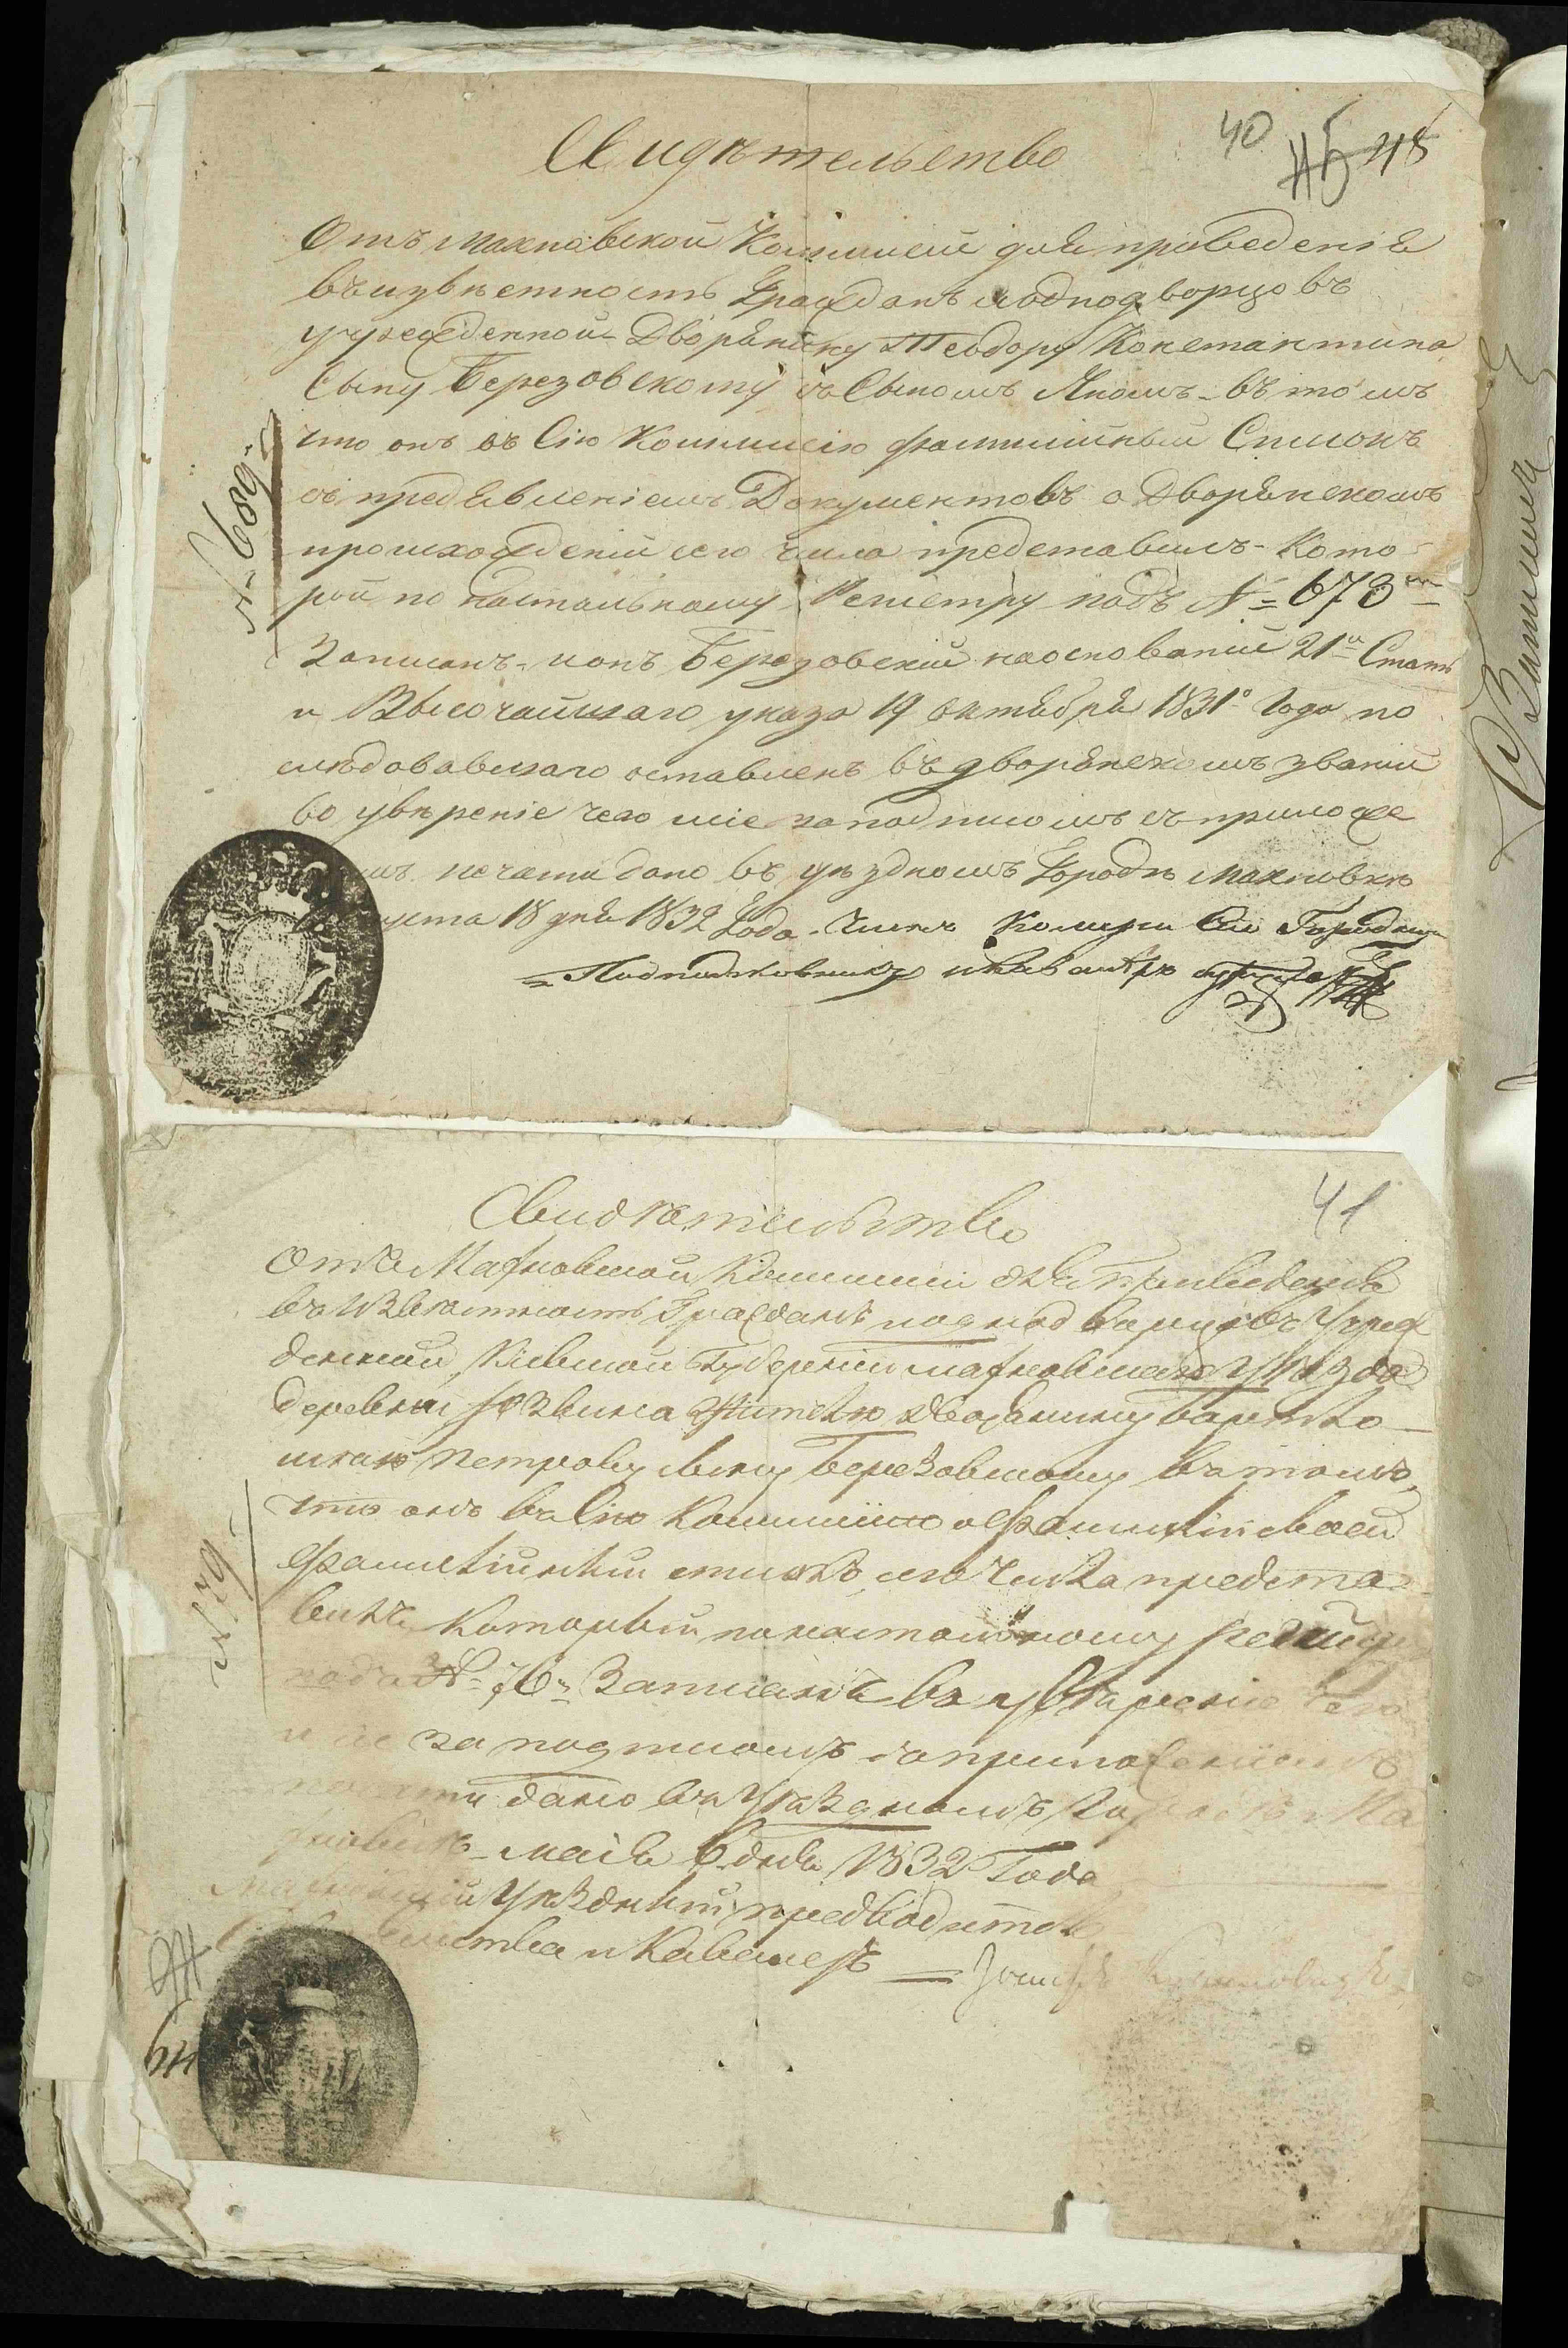 40
45
Свидѣтельство
Отъ Махновской Коммисіи для приведенія
въ извѣстность Гражданъ и однодворцовъ
учрежденной Дворянину Теодору Константина
Сыну Березовскому съ Сыномъ Яномъ въ томъ
что онъ въ Сію Коммисію фамилійный Списокъ
съ предъявленіемъ Документовъ о Дворянскомъ
происхожденіи сего числа представилъ - Кото
рой по настольному Регистру подъ № 673
Записанъ и онъ Березовскій на основаніи 21й Стать
и Высочайшаго указа 19 октября 1831 Года по
слѣдовавшаго оставленъ въ дворянскомъ званіи
во увѣреніе чего сіе за подписомъ съ приложе
мъ печати дано въ уѣздномъ Городѣ Махновкѣ
уста 18 дня 1832 Года. Членъ Комисіи Сей Городничи
Подполковникъ и Кавалеръ
№ 689
41
Свидѣтельство
Отъ Махновской Коммисіи для Приведенія
въ Извѣстность Гражданъ и однодворцовъ Учреж
денной, Кіевской Губерніи Махновскаго уѣзда
деревни жителю дворянину
Петрову сыну Березовскому въ томъ,
что онъ въ Сію Коммисію о Фамиліи своей
Фамилійный списокъ сего Числа предста
вилъ, Который по настольному
подъ № 76 Записанъ во увѣреніе чего
сіе за подписомъ съ приложеніемъ
печати дано въ Уѣздномъ Городѣ Ма
хновкѣ Маія 6 дня 1832 Года
Уѣздный предводитель
и Кавалеръ
№ 79